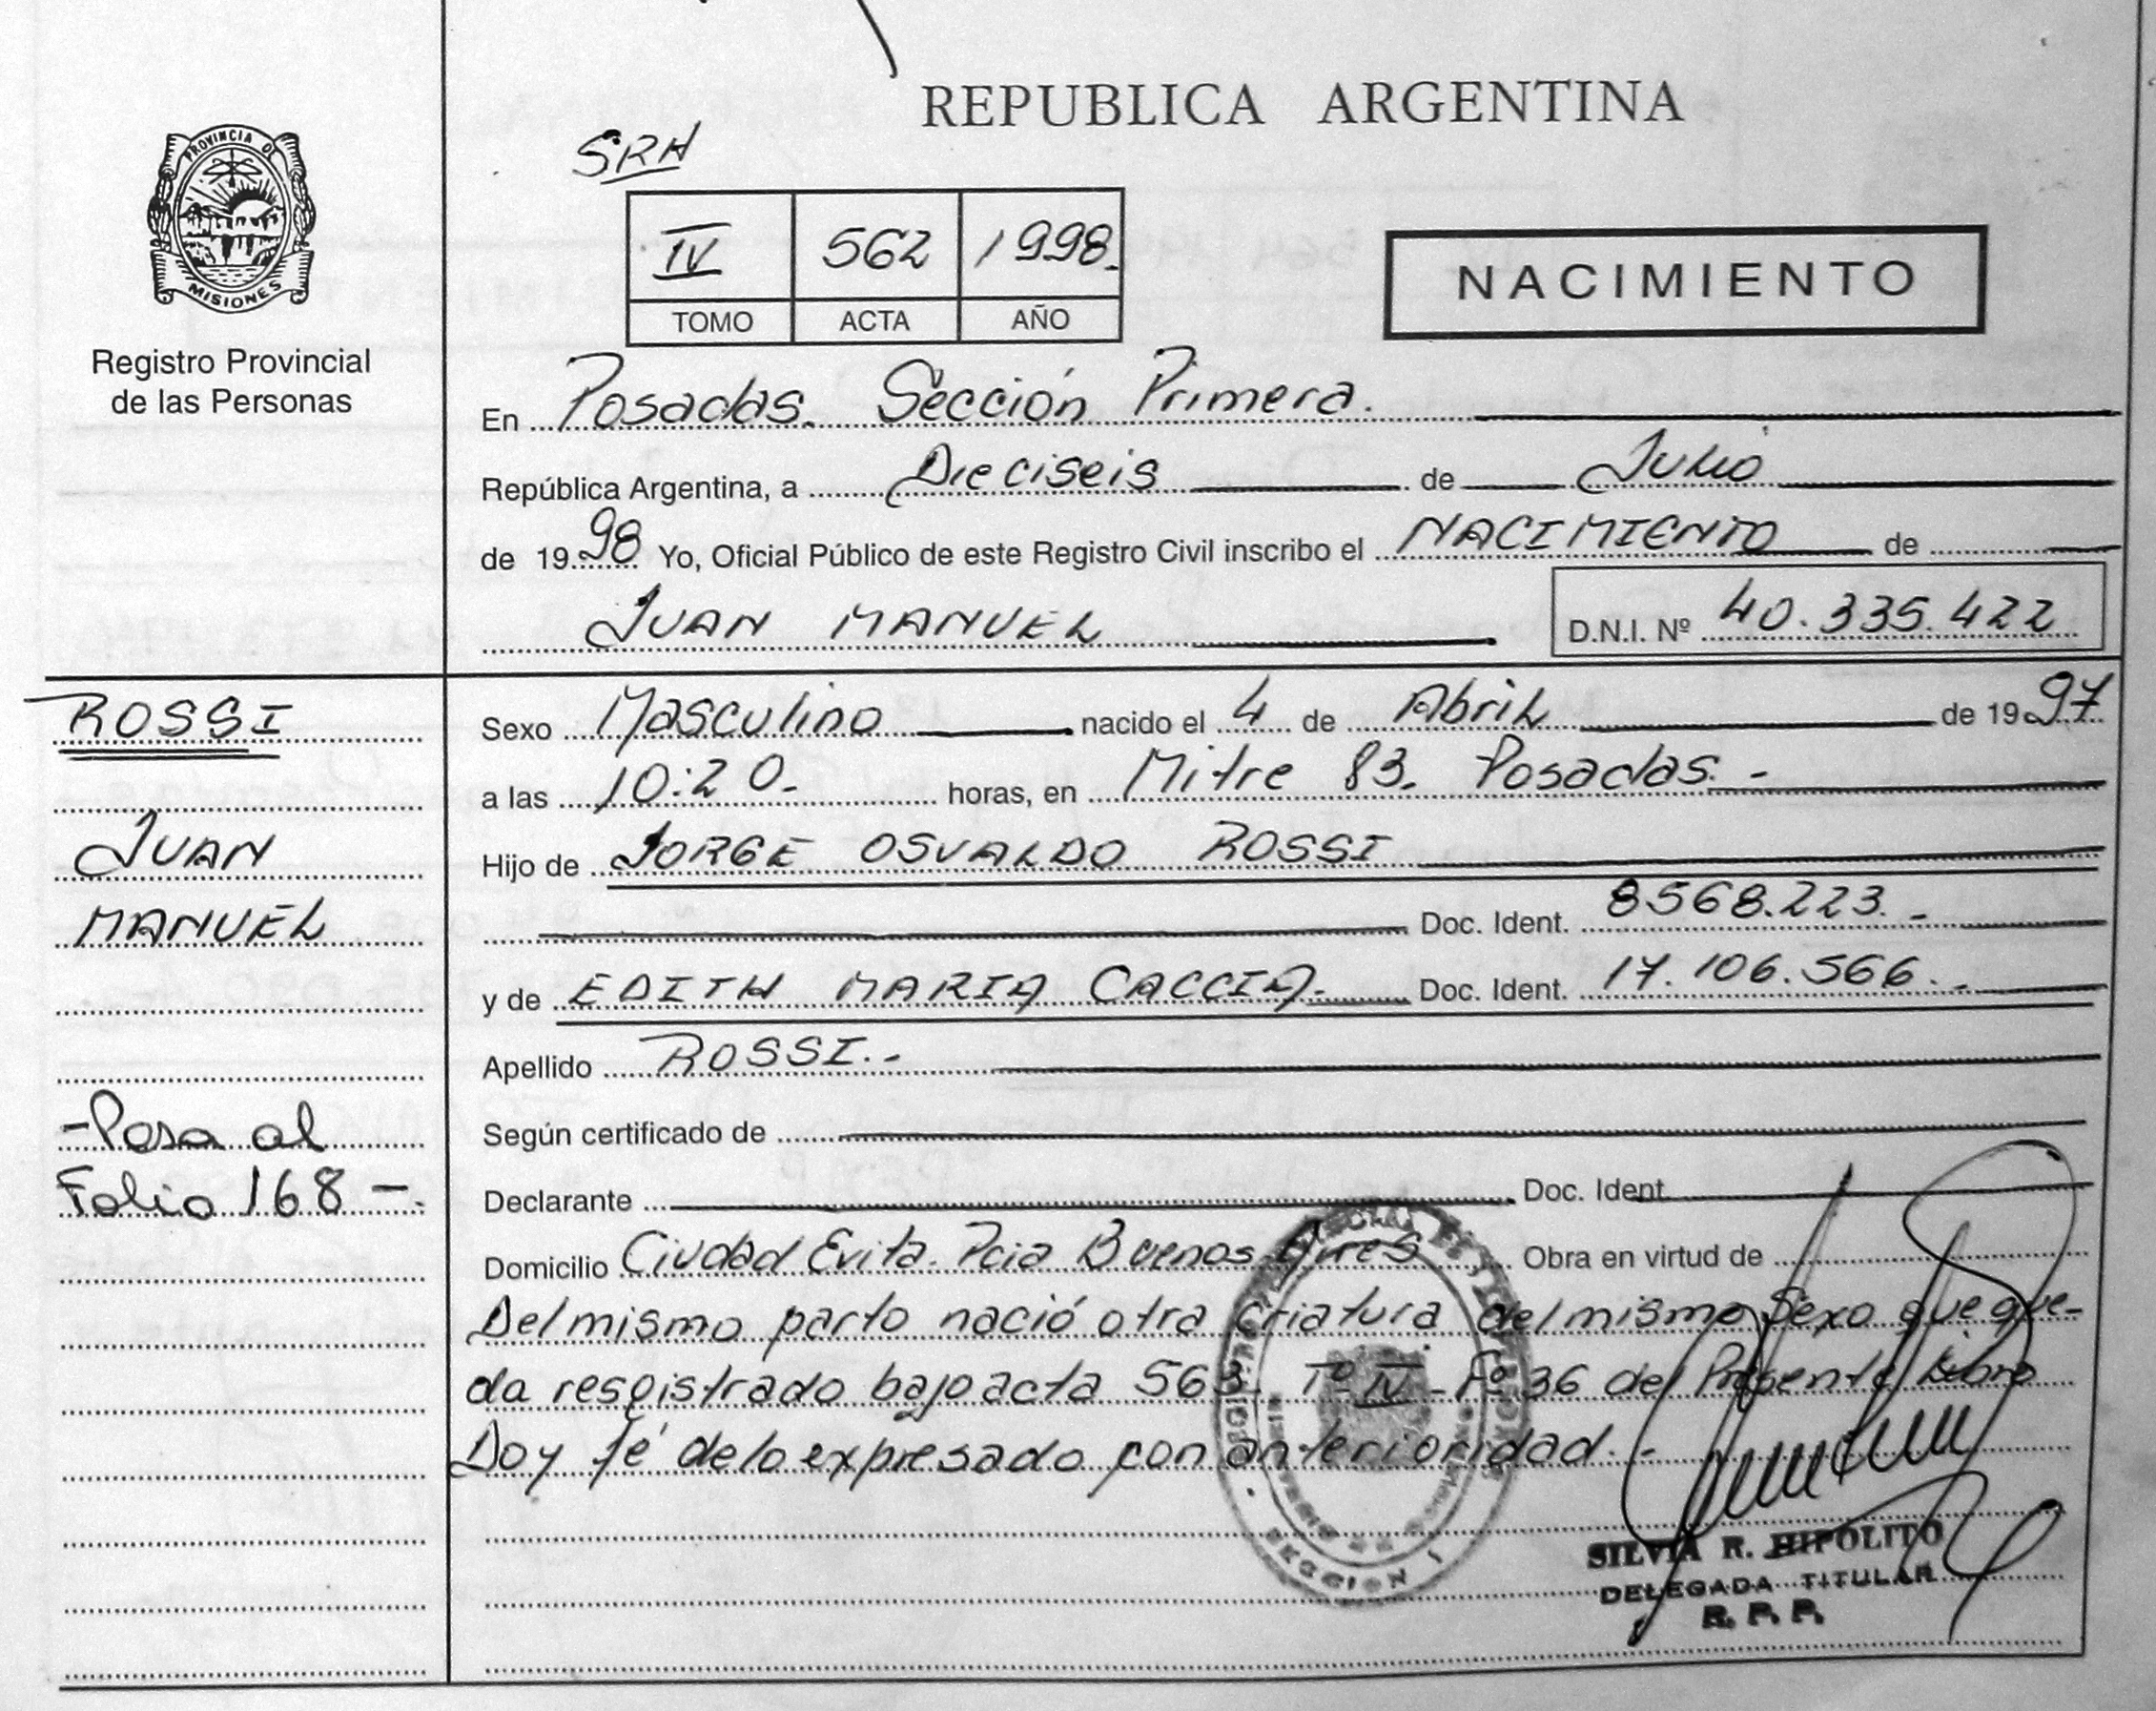 REPUBLICA ARGENTINA
PROVINCIA DE
MISIONES
Registro Provincial
de las Personas
SRH
IV 562 1998.
TOMO ACTA AÑO
NACIMIENTO
En Posadas. Sección Primera.
República Argentina, a Dieciseis de Julio
de 1998 Yo, Oficial Público de este Registro Civil inscribo el NACIMIENTO de
JUAN MANUEL D.N.I. Nº 40.335.422
ROSSI
JUAN
MANUEL
-Pasa al
Folio 168-.
Sexo Masculino nacido el 4 de Abril de 1997
a las 10:20.- horas, en Mitre 83. Posadas.-
Hijo de JORGE OSVALDO ROSSI
Doc. Ident. 8568.223.-
y de EDITH MARIA CACCIA.- Doc. Ident. 17.106.566.-
Apellido ROSSI.-
Según certificado de
Declarante Doc. Ident.
Domicilio Ciudad Evita. Pcia Buenos Aires Obra en virtud de
Del mismo parto nació otra criatura del mismo Sexo que que-
da resgistrado bajo acta 563 Tº IV - Fº 36 del Presente Libro
Doy fé de lo expresado con anterioridad.-
SECCION 1
SILVIA R. HIPOLITO
DELEGADA TITULAR
R. P. P.